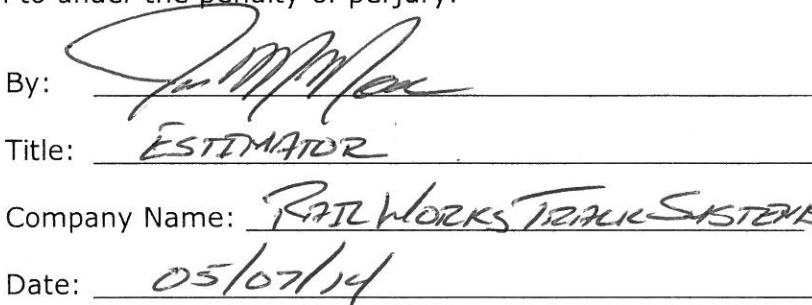 to under the penalty of perjury.
By:
Title: ESTIMATOR
Company Name: RAILWORKS TRACK SYSTEMS
Date: 05/07/14